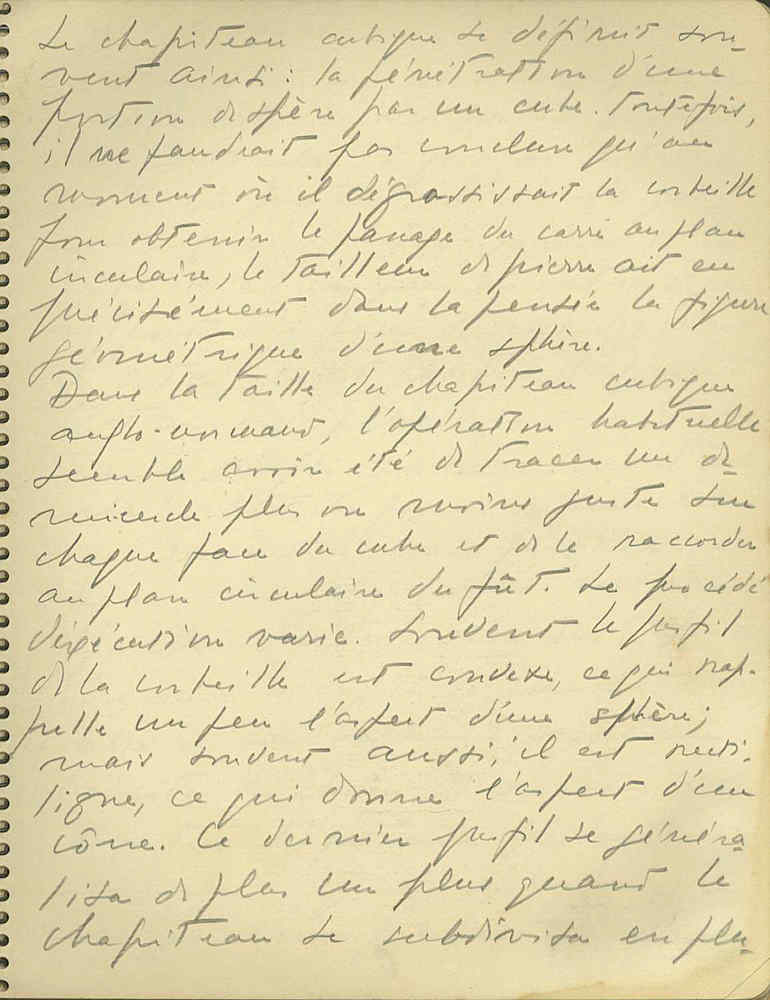 Le chapiteau cubique se définit sou-
vent ainsi : la pénétration d'une
portion de sphère par un cube. Toutefois,
il ne faudrait pas conclure qu'au
moment où il dégrossissait la corbeille
pour obtenir le passage du carré au plan
circulaire, le tailleur de pierre ait eu
précisément dans la pensée la figure
géométrique d'une sphère.
Dans la taille du chapiteau cubique
anglo-normand, l'opération habituelle
semble avoir été de tracer un de-
micercle plus ou moins juste sur
chaque face du cube et de le raccorder
au plan circulaire du fût. Le procédé
d'exécution varie. Souvent le profil
de la corbeille est convexe, ce qui rap-
pelle un peu l'aspect d'une sphère ;
mais souvent aussi, il est recti-
ligne, ce qui donne l'aspect d'un
cône. Ce dernier profil se généra-
lisa de plus en plus quand le
chapiteau se subdivisa en plu-